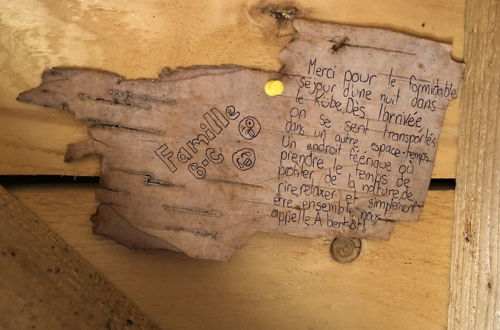 Famille
B-C
Merci pour le formidable
séjour d'une nuit dans
le Kube. Dès l'arrivée
on se sent transportés
dans un autre espace-temps.
Un endroit féerique où
prendre le temps de
profiter de la nature, de
rire, relaxer et simplement
être ensemble nous
appelle À bientôt!